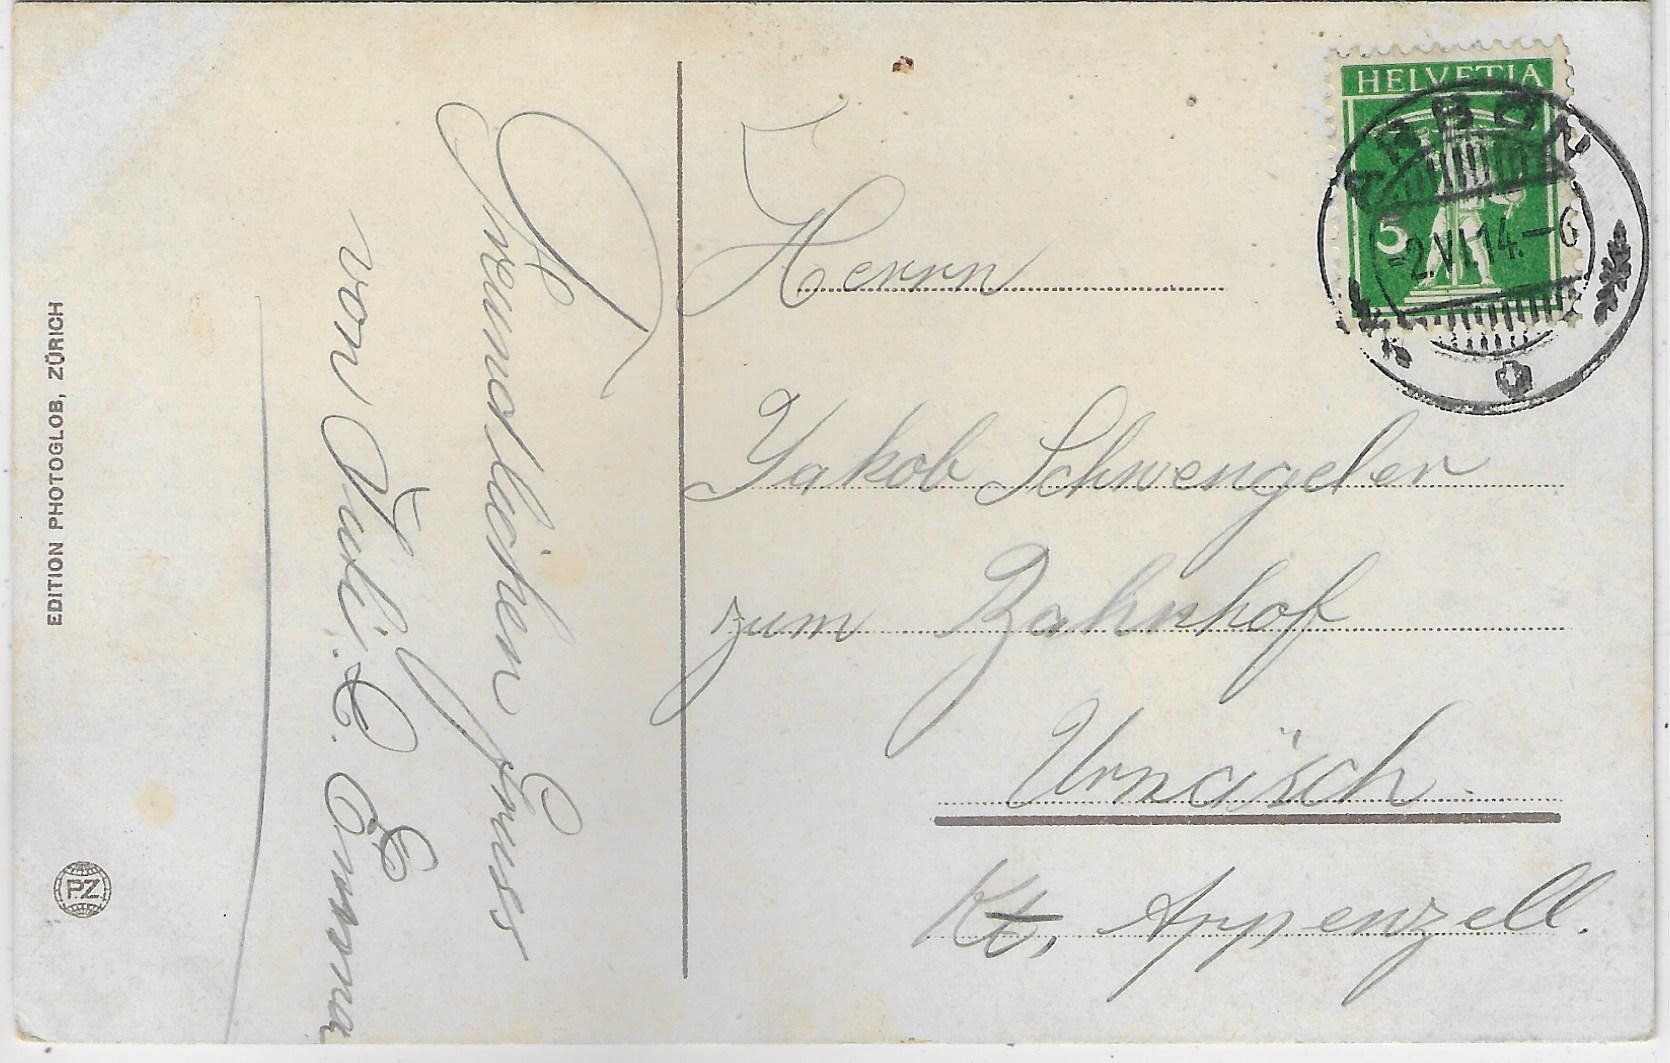 Freundlichen Gruss
von Juli. & Emma
EDITION PHOTOGLOB, ZÜRICH
P.Z.
HELVETIA
5
ARBON
-2.VI.14.-6
Herrn
Jakob Schwengeler
zum Bahnhof
Urnäsch
Kt. Appenzell.